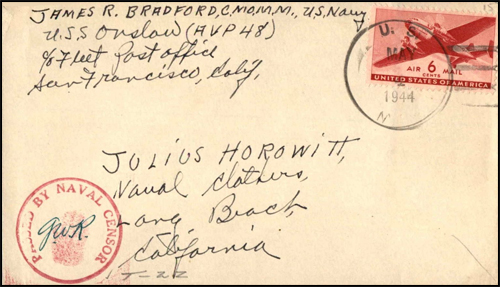 JAMES R. BRADFORD, C.M.O.M.M., U.S. Navy
U.S.S Onslow (AVP48)
c/o Fleet Post office
San Francisco, Calif,
U. S.
MAY
1944
N
AIR 6 MAIL
CENTS
UNITED STATES OF AMERICA
JULIUS HOROWITT,
Naval Clothiers,
Long Beach,
California
J-22
PASSED BY NAVAL CENSOR
GWR.